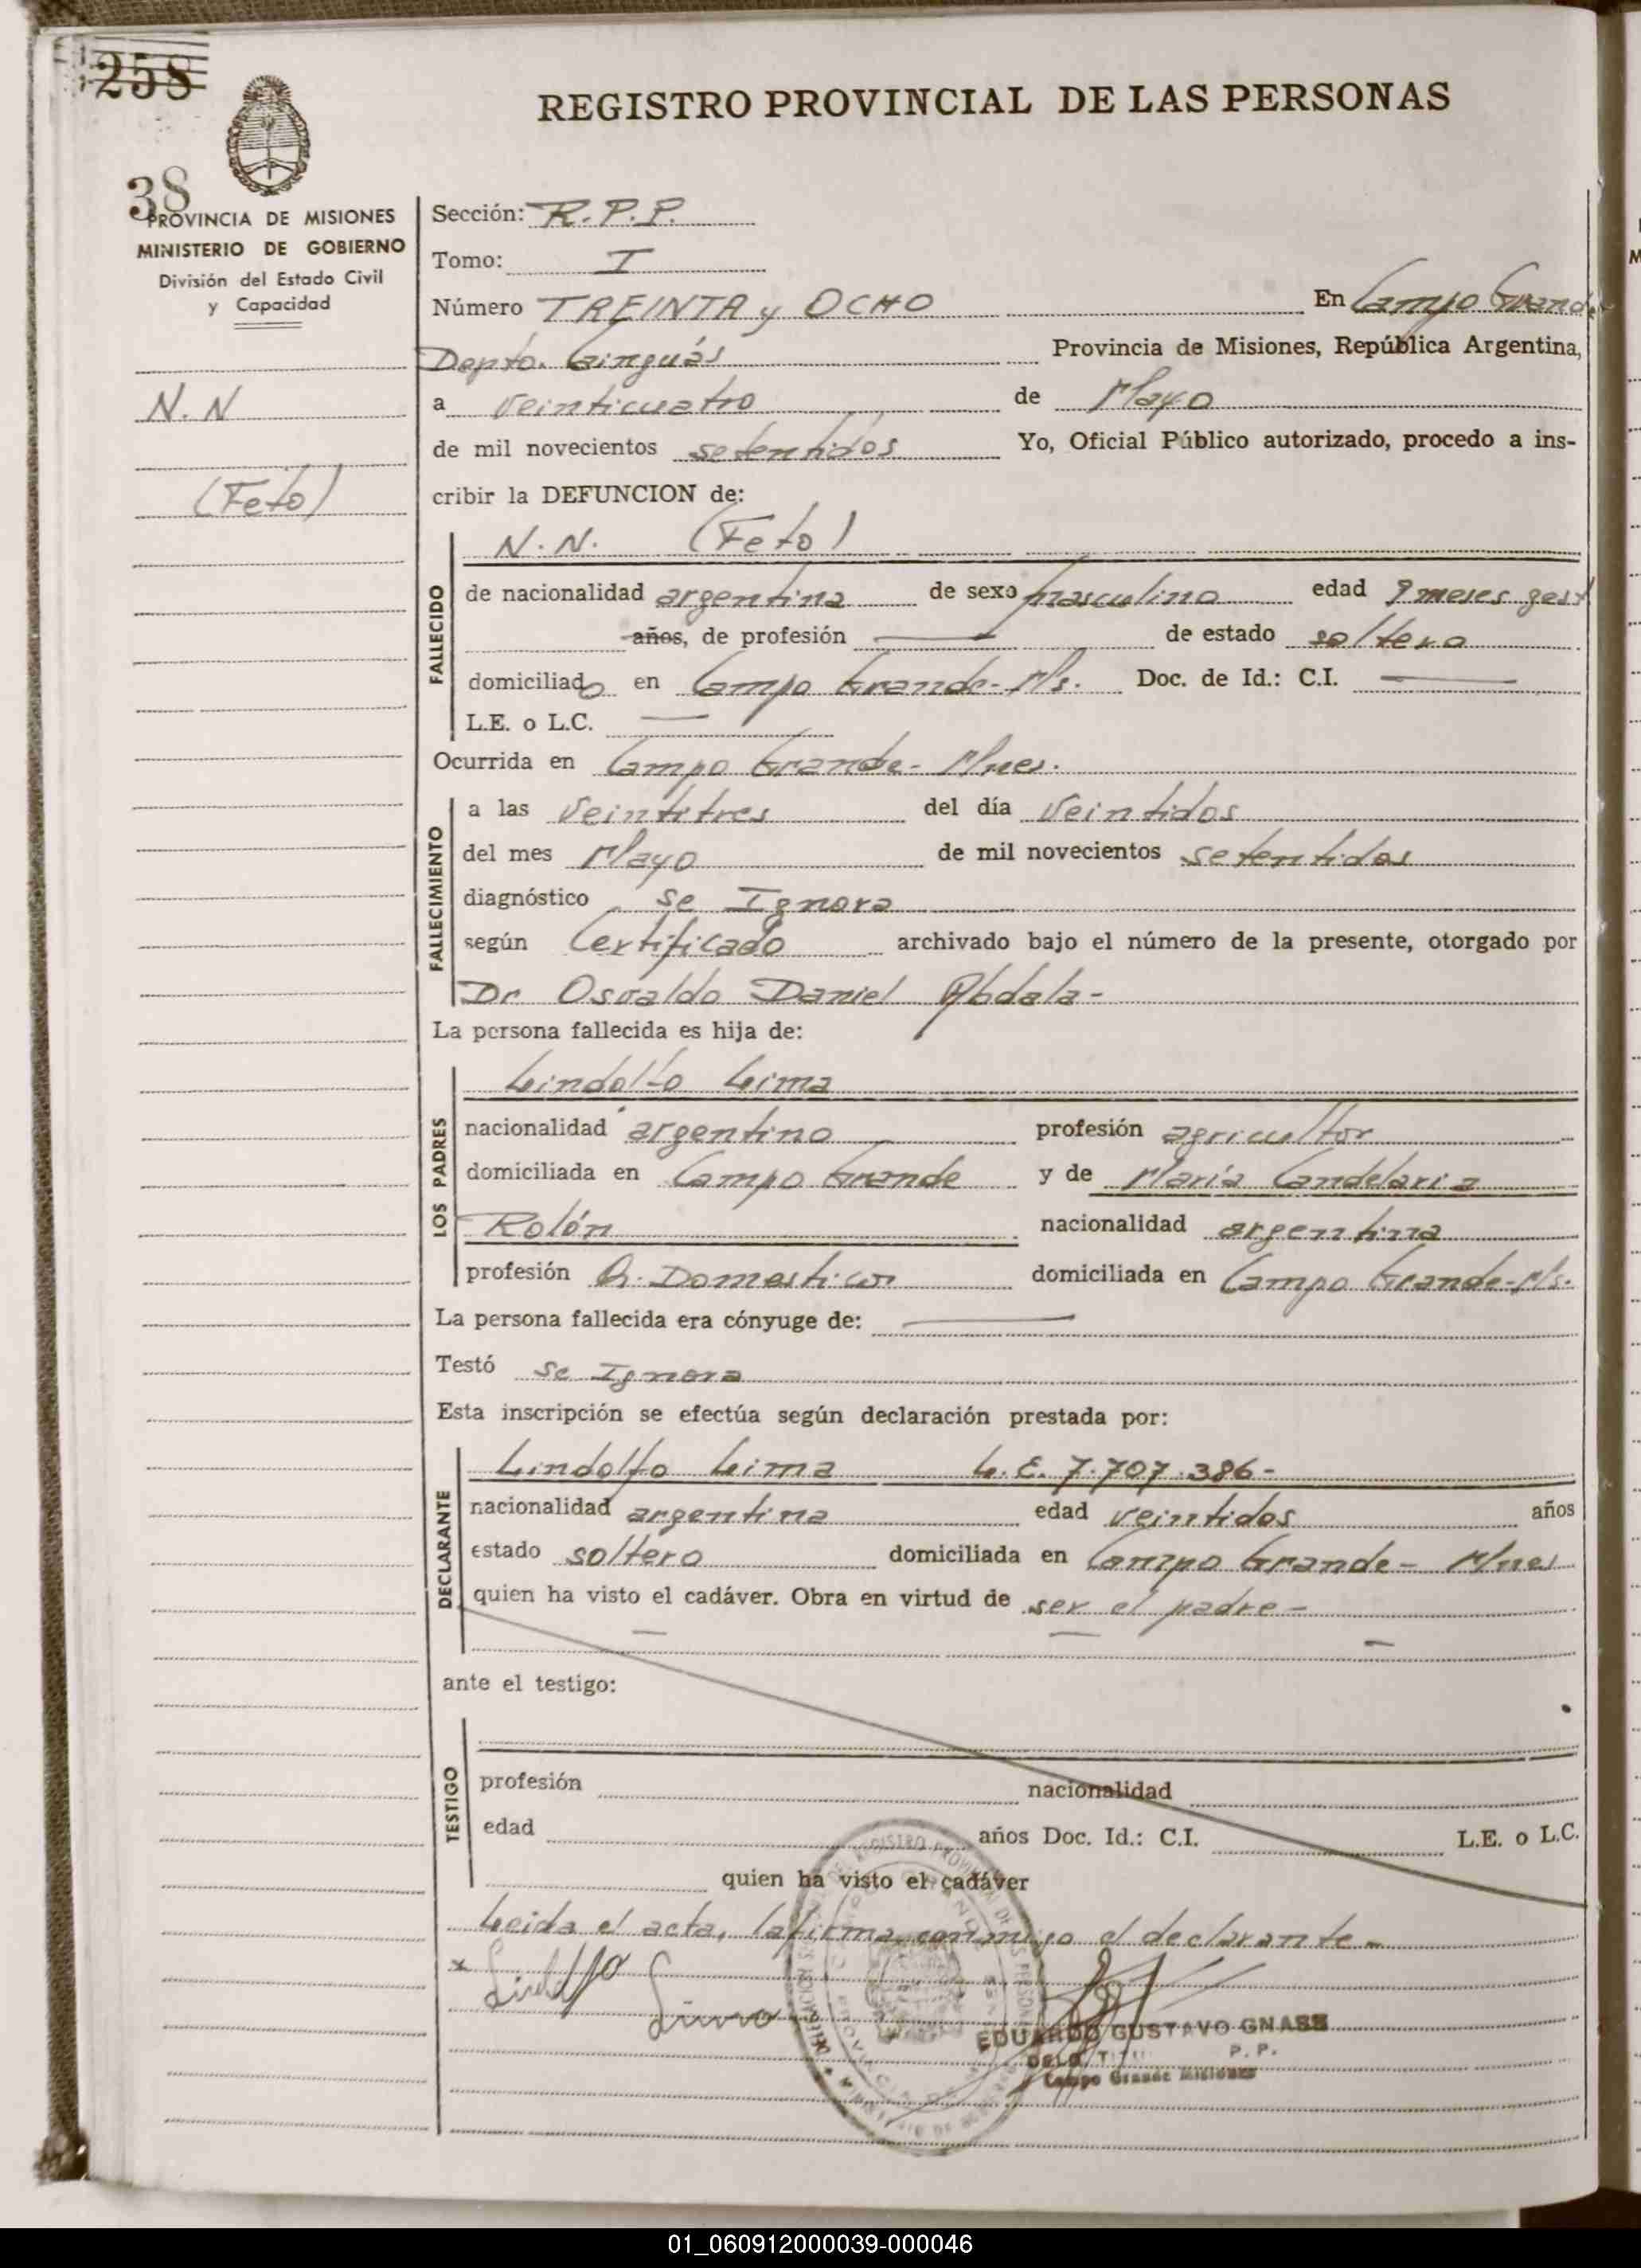 258
REGISTRO PROVINCIAL DE LAS PERSONAS
38
PROVINCIA DE MISIONES
MINISTERIO DE GOBIERNO
División del Estado Civil
y Capacidad
N.N
(Feto)
Sección: R.P.P.
Tomo: I
Número TREINTA y OCHO En Campo Grande
Depto. Cainguás Provincia de Misiones, República Argentina,
a veinticuatro de Mayo
de mil novecientos setentidos Yo, Oficial Público autorizado, procedo a ins-
cribir la DEFUNCION de:
FALLECIDO
N.N. (Feto)
de nacionalidad argentina de sexo masculino edad 9 meses gest
años, de profesión de estado soltero
domiciliado en Campo Grande - Ms. Doc. de Id.: C.I.
L.E. o L.C.
Ocurrida en Campo Grande - Mnes.
FALLECIMIENTO
a las veintitres del día veintidos
del mes Mayo de mil novecientos setentidos
diagnóstico se Ignora
según Certificado archivado bajo el número de la presente, otorgado por
Dr Osvaldo Daniel Abdala -
La persona fallecida es hija de:
LOS PADRES
Lindolfo Lima
nacionalidad argentino profesión agricultor
domiciliada en Campo Grande y de María Candelaria
Rolón nacionalidad argentina
profesión Q. Domesticos domiciliada en Campo Grande - Ms.
La persona fallecida era cónyuge de:
Testó se Ignora
Esta inscripción se efectúa según declaración prestada por:
DECLARANTE
Lindolfo Lima L.E. 7.707.386 -
nacionalidad argentina edad veintidos años
estado soltero domiciliada en Campo Grande - Mnes
quien ha visto el cadáver. Obra en virtud de ser el padre -
ante el testigo:
TESTIGO
profesión nacionalidad
edad años Doc. Id.: C.I. L.E. o L.C.
quien ha visto el cadáver
Leida el acta, la firma conmigo el declarante -
x Lindolfo Lima
EDUARDO GUSTAVO GNASS
P. P.
Campo Grande Misiones
01_060912000039-000046